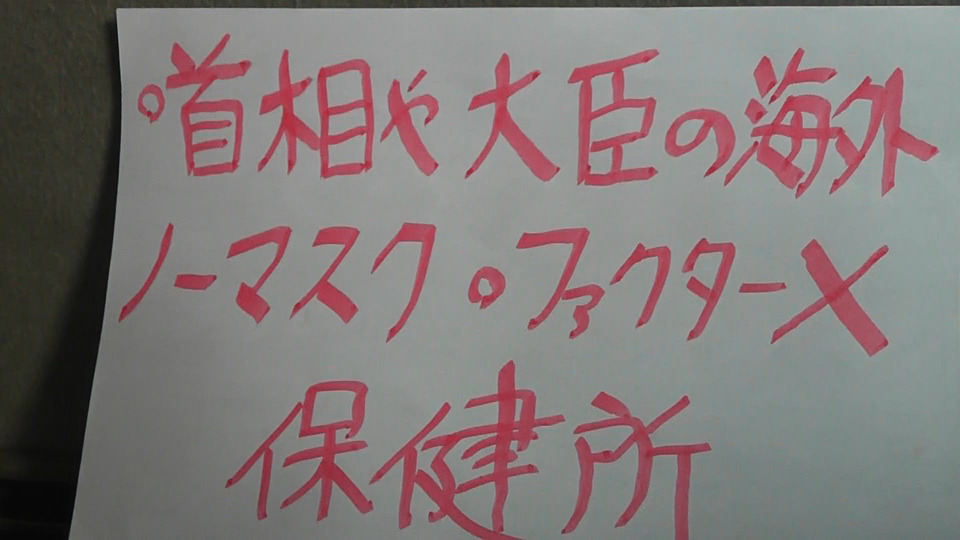 。首相や大臣の海外
ノーマスク。ファクターX
保健所